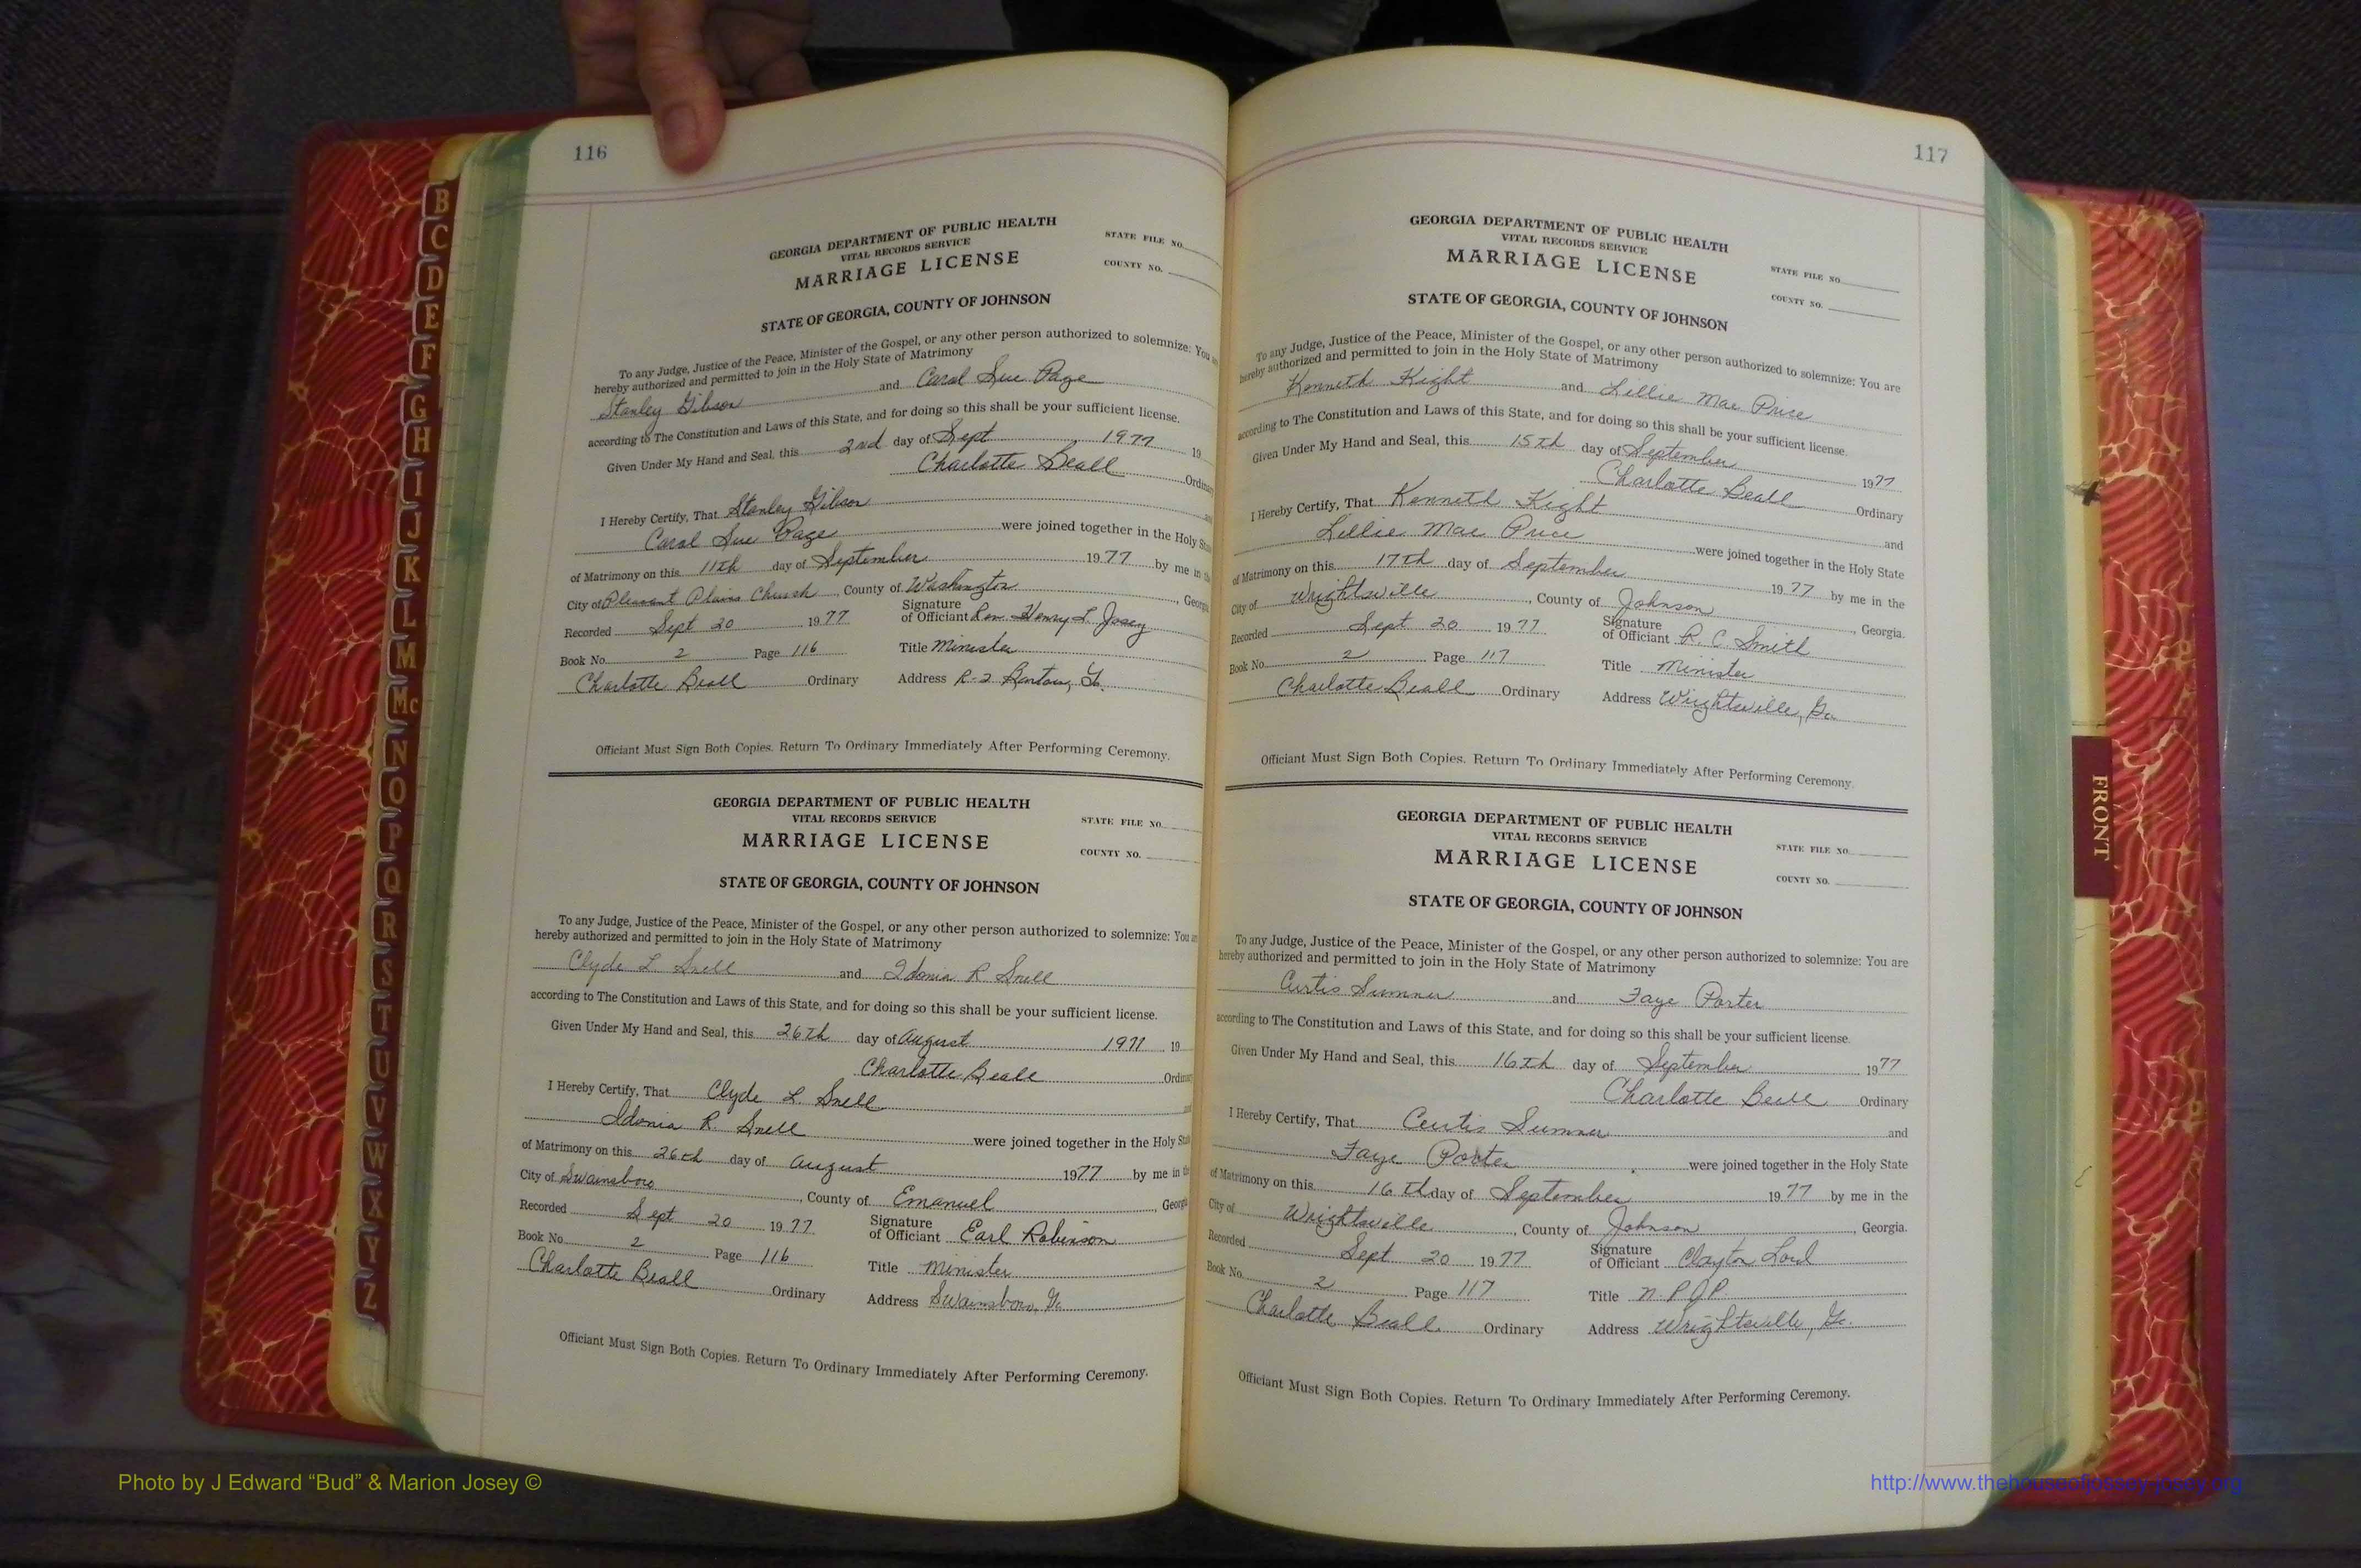 116
GEORGIA DEPARTMENT OF PUBLIC HEALTH
VITAL RECORDS SERVICE
MARRIAGE LICENSE
STATE FILE NO.
COUNTY NO.
STATE OF GEORGIA, COUNTY OF JOHNSON
To any Judge, Justice of the Peace, Minister of the Gospel, or any other person authorized to solemnize: You
hereby authorized and permitted to join in the Holy State of Matrimony
Stanley Gibson and Carol Sue Page
according to The Constitution and Laws of this State, and for doing so this shall be your sufficient license.
Given Under My Hand and Seal, this 2nd day of Sept 1977 19
Charlotte Beall
I Hereby Certify, That Stanley Gibson
Carol Sue Page were joined together in the Holy
of Matrimony on this 11th day of September 1977 by me in
City of Pleasant Plains Church, County of Washington,
Recorded Sept 20 1977 Signature of Officiant Rev. Henry L. Josey
Book No. 2 Page 116 Title Minister
Charlotte Beall Ordinary Address R-2
Officiant Must Sign Both Copies. Return To Ordinary Immediately After Performing Ceremony.
GEORGIA DEPARTMENT OF PUBLIC HEALTH
VITAL RECORDS SERVICE
MARRIAGE LICENSE
STATE FILE NO.
COUNTY NO.
STATE OF GEORGIA, COUNTY OF JOHNSON
To any Judge, Justice of the Peace, Minister of the Gospel, or any other person authorized to solemnize: You
hereby authorized and permitted to join in the Holy State of Matrimony
Clyde L Snell and Idonia R Snell
according to The Constitution and Laws of this State, and for doing so this shall be your sufficient license.
Given Under My Hand and Seal, this 26th day of August 1977 19
Charlotte Beall
I Hereby Certify, That Clyde L. Snell
Idonia R. Snell were joined together in the Holy
of Matrimony on this 26th day of August 1977 by me in
City of Swainsboro, County of Emanuel,
Recorded Sept 20 1977 Signature of Officiant Earl Robinson
Book No. 2 Page 116 Title Minister
Charlotte Beall Ordinary Address Swainsboro, Ga.
Officiant Must Sign Both Copies. Return To Ordinary Immediately After Performing Ceremony.
117
GEORGIA DEPARTMENT OF PUBLIC HEALTH
VITAL RECORDS SERVICE
MARRIAGE LICENSE
STATE FILE NO.
COUNTY NO.
STATE OF GEORGIA, COUNTY OF JOHNSON
To any Judge, Justice of the Peace, Minister of the Gospel, or any other person authorized to solemnize: You are
hereby authorized and permitted to join in the Holy State of Matrimony
Kenneth Kight and Lillie Mae Price
according to The Constitution and Laws of this State, and for doing so this shall be your sufficient license.
Given Under My Hand and Seal, this 15th day of September 1977
Charlotte Beall Ordinary
I Hereby Certify, That Kenneth Kight and
Lillie Mae Price were joined together in the Holy State
of Matrimony on this 17th day of September 1977 by me in the
City of Wrightsville, County of Johnson, Georgia.
Recorded Sept 20 1977 Signature of Officiant R. C. Smith
Book No. 2 Page 117 Title Minister
Charlotte Beall Ordinary Address Wrightsville, Ga
Officiant Must Sign Both Copies. Return To Ordinary Immediately After Performing Ceremony.
GEORGIA DEPARTMENT OF PUBLIC HEALTH
VITAL RECORDS SERVICE
MARRIAGE LICENSE
STATE FILE NO.
COUNTY NO.
STATE OF GEORGIA, COUNTY OF JOHNSON
To any Judge, Justice of the Peace, Minister of the Gospel, or any other person authorized to solemnize: You are
hereby authorized and permitted to join in the Holy State of Matrimony
Curtis Sumner and Faye Porter
according to The Constitution and Laws of this State, and for doing so this shall be your sufficient license.
Given Under My Hand and Seal, this 16th day of September 1977
Charlotte Beall Ordinary
I Hereby Certify, That Curtis Sumner and
Faye Porter were joined together in the Holy State
of Matrimony on this 16th day of September 1977 by me in the
City of Wrightsville, County of Johnson, Georgia.
Recorded Sept 20 1977 Signature of Officiant Clayton Lord
Book No. 2 Page 117 Title N.P.J.P.
Charlotte Beall Ordinary Address Wrightsville, Ga.
Officiant Must Sign Both Copies. Return To Ordinary Immediately After Performing Ceremony.
B
C
D
E
F
G
H
I
J
K
L
M
Mc
N
O
P
Q
R
S
T
U
V
W
X
Y
Z
FRONT
Photo by J Edward “Bud” & Marion Josey ©
http://www.thehouseofjossey-josey.org